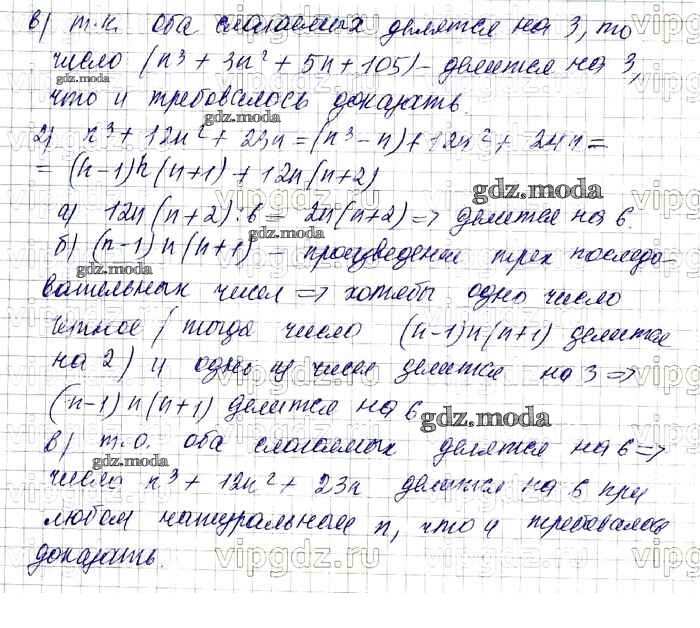 в) т.к. оба слагаемых делятся на 3, то
число (n³ + 3n² + 5n + 105) – делится на 3,
что и требовалось доказать.
2) n³ + 12n² + 23n = (n³ – n) + 12n² + 24n =
= (n-1)n(n+1) + 12n(n+2)
а) 12n(n+2) : 6 = 2n(n+2) => делится на 6.
б) (n-1)n(n+1) – произведение трех последо-
вательных чисел => хотябы одно число
четное (тогда число (n-1)n(n+1) делится
на 2) и одно из чисел делится на 3 =>
(n-1)n(n+1) делится на 6
в) т.о. оба слагаемых делятся на 6 =>
число n³ + 12n² + 23n делится на 6 при
любом натуральном n, что и требовалось
доказать.
gdz.moda
gdz.moda
gdz.moda
gdz.moda
gdz.moda
gdz.moda
gdz.moda
vipgdz.ru